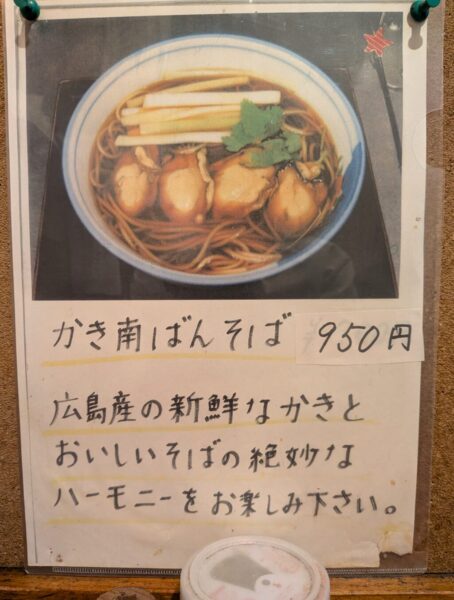 かき南ばんそば 950円
広島産の新鮮なかきと
おいしいそばの絶妙な
ハーモニーをお楽しみ下さい。